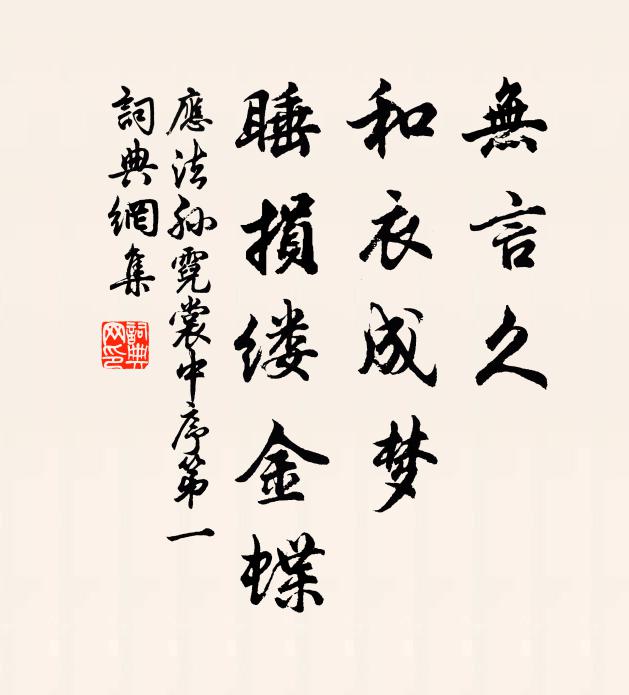 無言久
和衣成梦
睡損缕金蝶
應法孙霓裳中序第一
詞典網集
詞典
网印